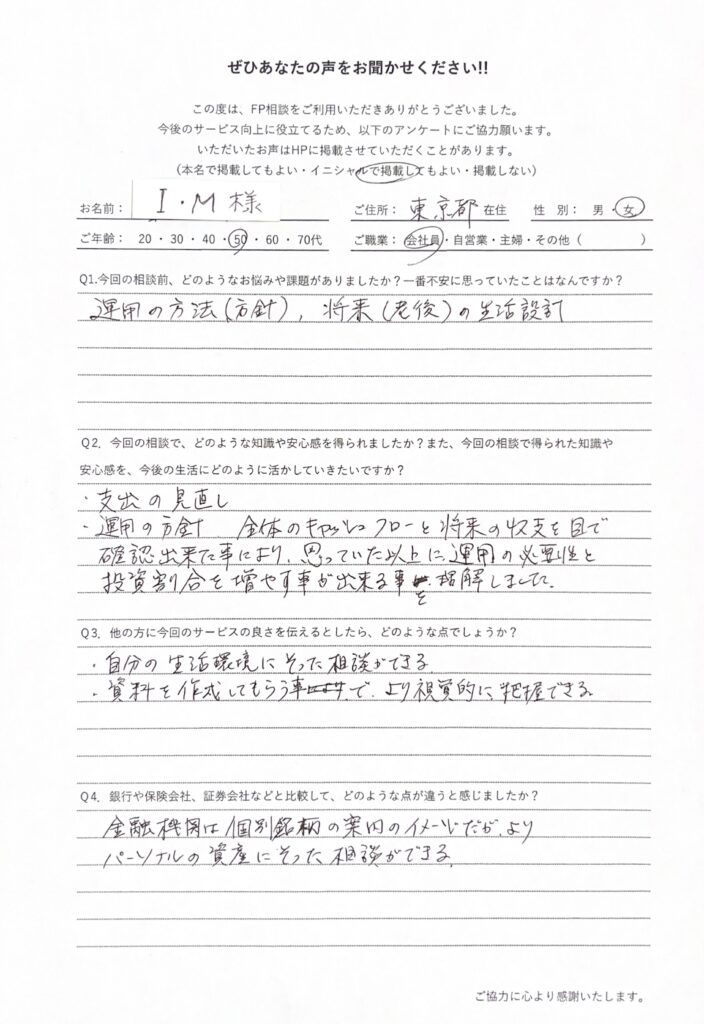 ぜひあなたの声をお聞かせください!!
この度は、FP相談をご利用いただきありがとうございました。
今後のサービス向上に役立てるため、以下のアンケートにご協力願います。
いただいたお声はHPに掲載させていただくことがあります。
(本名で掲載してもよい・イニシャルで掲載してもよい・掲載しない)
お名前： I・M 様 ご住所： 東京都 在住 性 別： 男・女
ご年齢： 20・30・40・50・60・70代 ご職業： 会社員・自営業・主婦・その他（ ）
Q1.今回の相談前、どのようなお悩みや課題がありましたか？一番不安に思っていたことはなんですか？
運用の方法(方針), 将来(老後)の生活設計
Q2. 今回の相談で、どのような知識や安心感を得られましたか？また、今回の相談で得られた知識や
安心感を、今後の生活にどのように活かしていきたいですか？
・支出の見直し
・運用の方針 全体のキャッシュフローと将来の収支を目で
確認出来た事により、思っていた以上に、運用の必要性と
投資割合を増やす事が出来る事を理解しました.
Q3. 他の方に今回のサービスの良さを伝えるとしたら、どのような点でしょうか？
・自分の生活環境にそった相談ができる
・資料を作成してもらう事で、より視覚的に把握できる.
Q4. 銀行や保険会社、証券会社などと比較して、どのような点が違うと感じましたか？
金融機関は個別銘柄の案内のイメージだが、より
パーソナルの資産にそった相談ができる.
ご協力に心より感謝いたします。